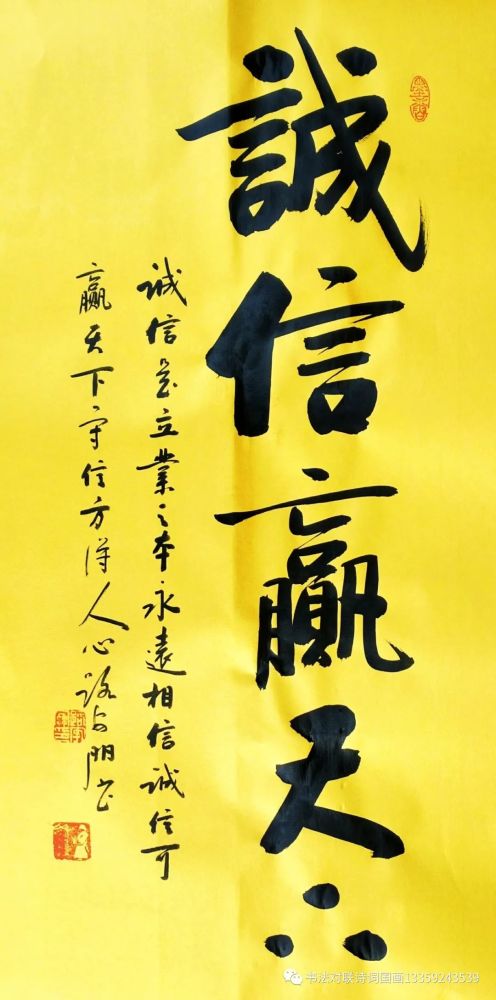 誠信贏天下
诚信是立業之本永遠相信诚信可
赢天下守信方得人心路安明书
书法对联诗词国画13359243539